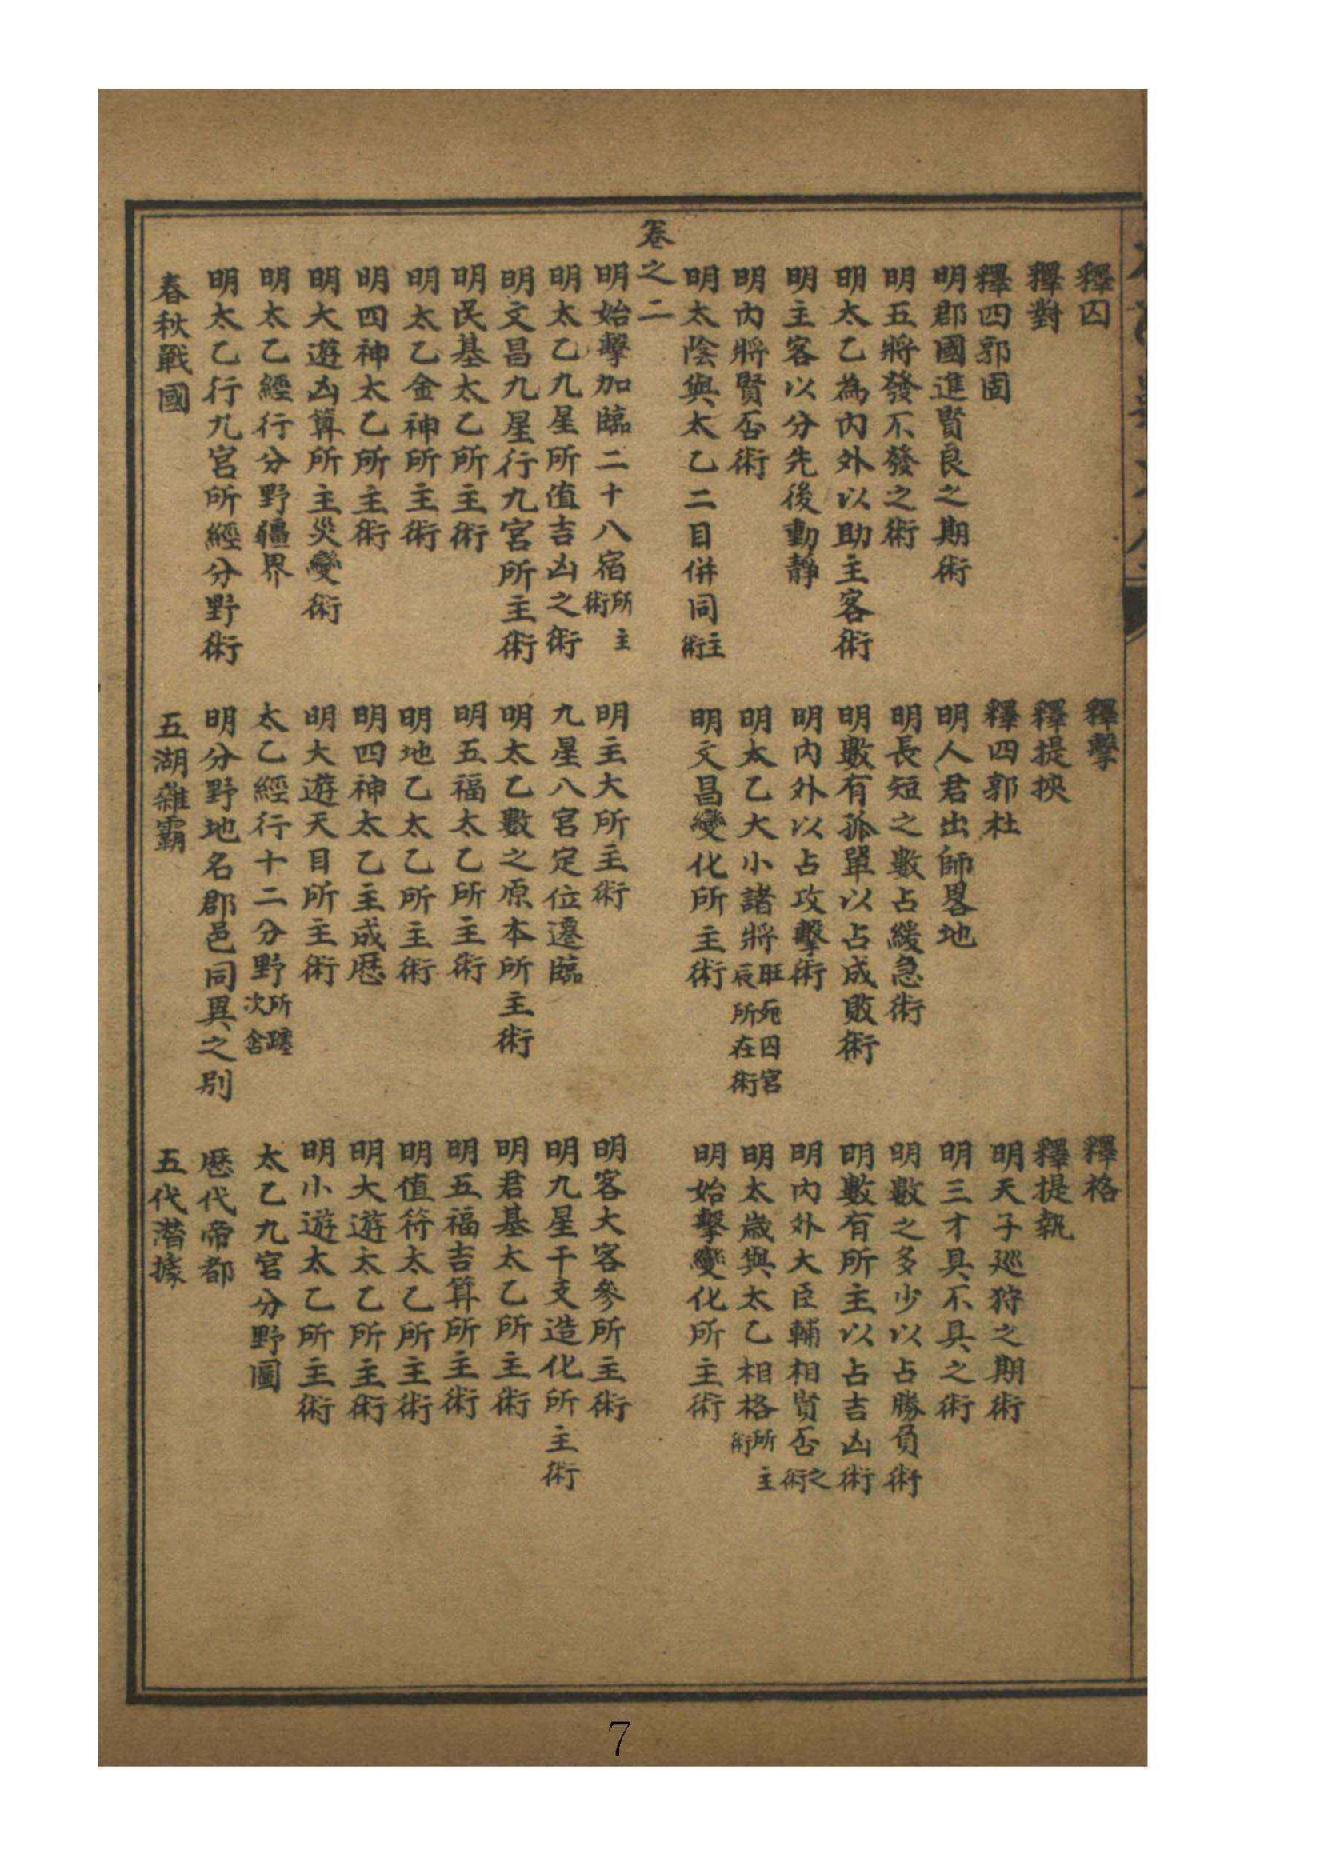 釋囚　釋擊　釋格
釋對　釋提挾　釋提執
釋四郭固　釋四郭杜　明天子巡狩之期術
明郡國進賢良之期術　明人君出師畧地　明三才具不具之術
明五將發不發之術　明長短之數占緩急術　明數之多少以占勝負術
明太乙為內外以助主客術　明數有孤單以占成敗術　明數有所主以占吉凶術
明主客以分先後動靜　明內外以占攻擊術　明內外大臣輔相賢否之術
明內將賢否術　明太乙大小諸將旺死囚宮辰所在術　明太歲與太乙相格所主術
明太陰與太乙二目併同主術　明文昌變化所主術　明始擊變化所主術
卷之二
明始擊加臨二十八宿所主術　明主大所主術　明客大客參所主術
明太乙九星所值吉凶之術　九星八宮定位遷臨　明九星干支造化所主術
明文昌九星行九宮所主術　明太乙數之原本所主術　明君基太乙所主術
明民基太乙所主術　明五福太乙所主術　明五福吉算所主術
明太乙金神所主術　明地乙太乙所主術　明值符太乙所主術
明四神太乙所主術　明四神太乙主成厯　明大遊太乙所主術
明大遊凶算所主災變術　明大遊天目所主術　明小遊太乙所主術
明太乙經行分野疆界　太乙經行十二分野所躔次舍　太乙九宮分野圖
明太乙行九宮所經分野術　明分野地名郡邑同異之別　厯代帝都
春秋戰國　五湖雜霸　五代潛據
7